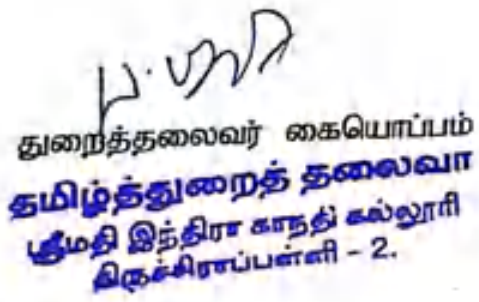 துறைத்தலைவர் கையொப்பம்
தமிழ்த்துறைத் தலைவர
ஸ்ரீமதி இந்திரா காந்தி கல்லூரி
திருச்சிராப்பள்ளி - 2.